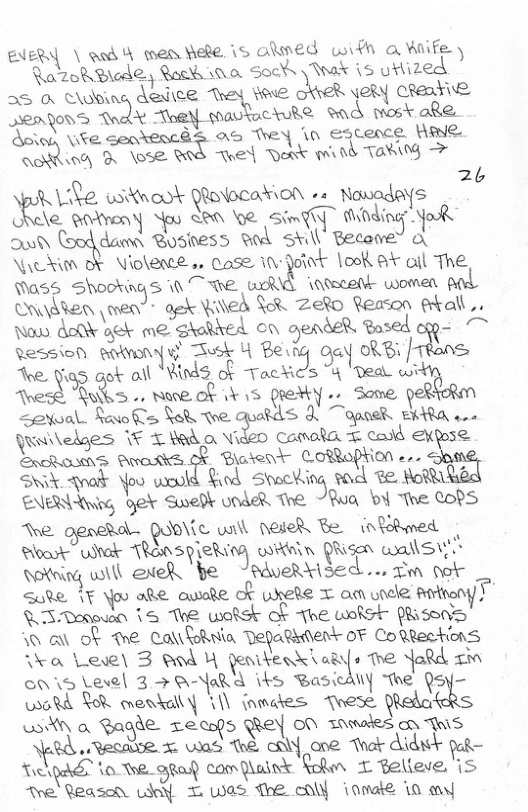 EVERY 1 And 4 men Here is armed with a Knife,
RazorBlade, Rock in a Sock, That is utlized
as a clubing device They HAVE other very creative
weapons That They maufacture And most are
doing life sentences as They in escence HAVE
nothing 2 lose And They Dont mind Taking →
26
YOUR Life without PROVACATION .. Nowadays
uncle Anthony you can be simply minding your
own Goddamn Business And still Become a
Victim of Violence .. Case in point look At all The
mass shootings in The world innocent women And
Children, men get Killed for ZERO Reason At all ..
Now dont get me started on gender Based opp-
Ression Anthony Just 4 Being gay OR Bi/TRANS
The pigs got all Kinds of Tactics 4 Deal with
These folks .. None of it is pretty .. Some perform
sexual favors for The guards 2 ganer EXTRA ...
priviledges if I Had a Video Camara I could expose
enoraums Amounts of Blatent Corruption ... Some
Shit That you would find Shocking And Be Horrified
EVERYthing get swept under The Rug by The COPS
The general public will never Be informed
About what TRANSpiering within prison walls!
Nothing will ever be Advertised ... I'm not
sure if you are aware of where I am uncle Anthony?
R.J. Donovan is The worst of The worst prison's
in all of The California Department OF Corrections
it a Level 3 And 4 penitentiary. The Yard I'm
on is Level 3 → A-Yard its Basically The psy-
ward for mentally ill inmates These predators
with a Bagde Ie cops prey on Inmates on This
Yard .. Because I was The only one That didnt par-
ticipate in The group complaint form I Believe is
The Reason why I was The only inmate in my